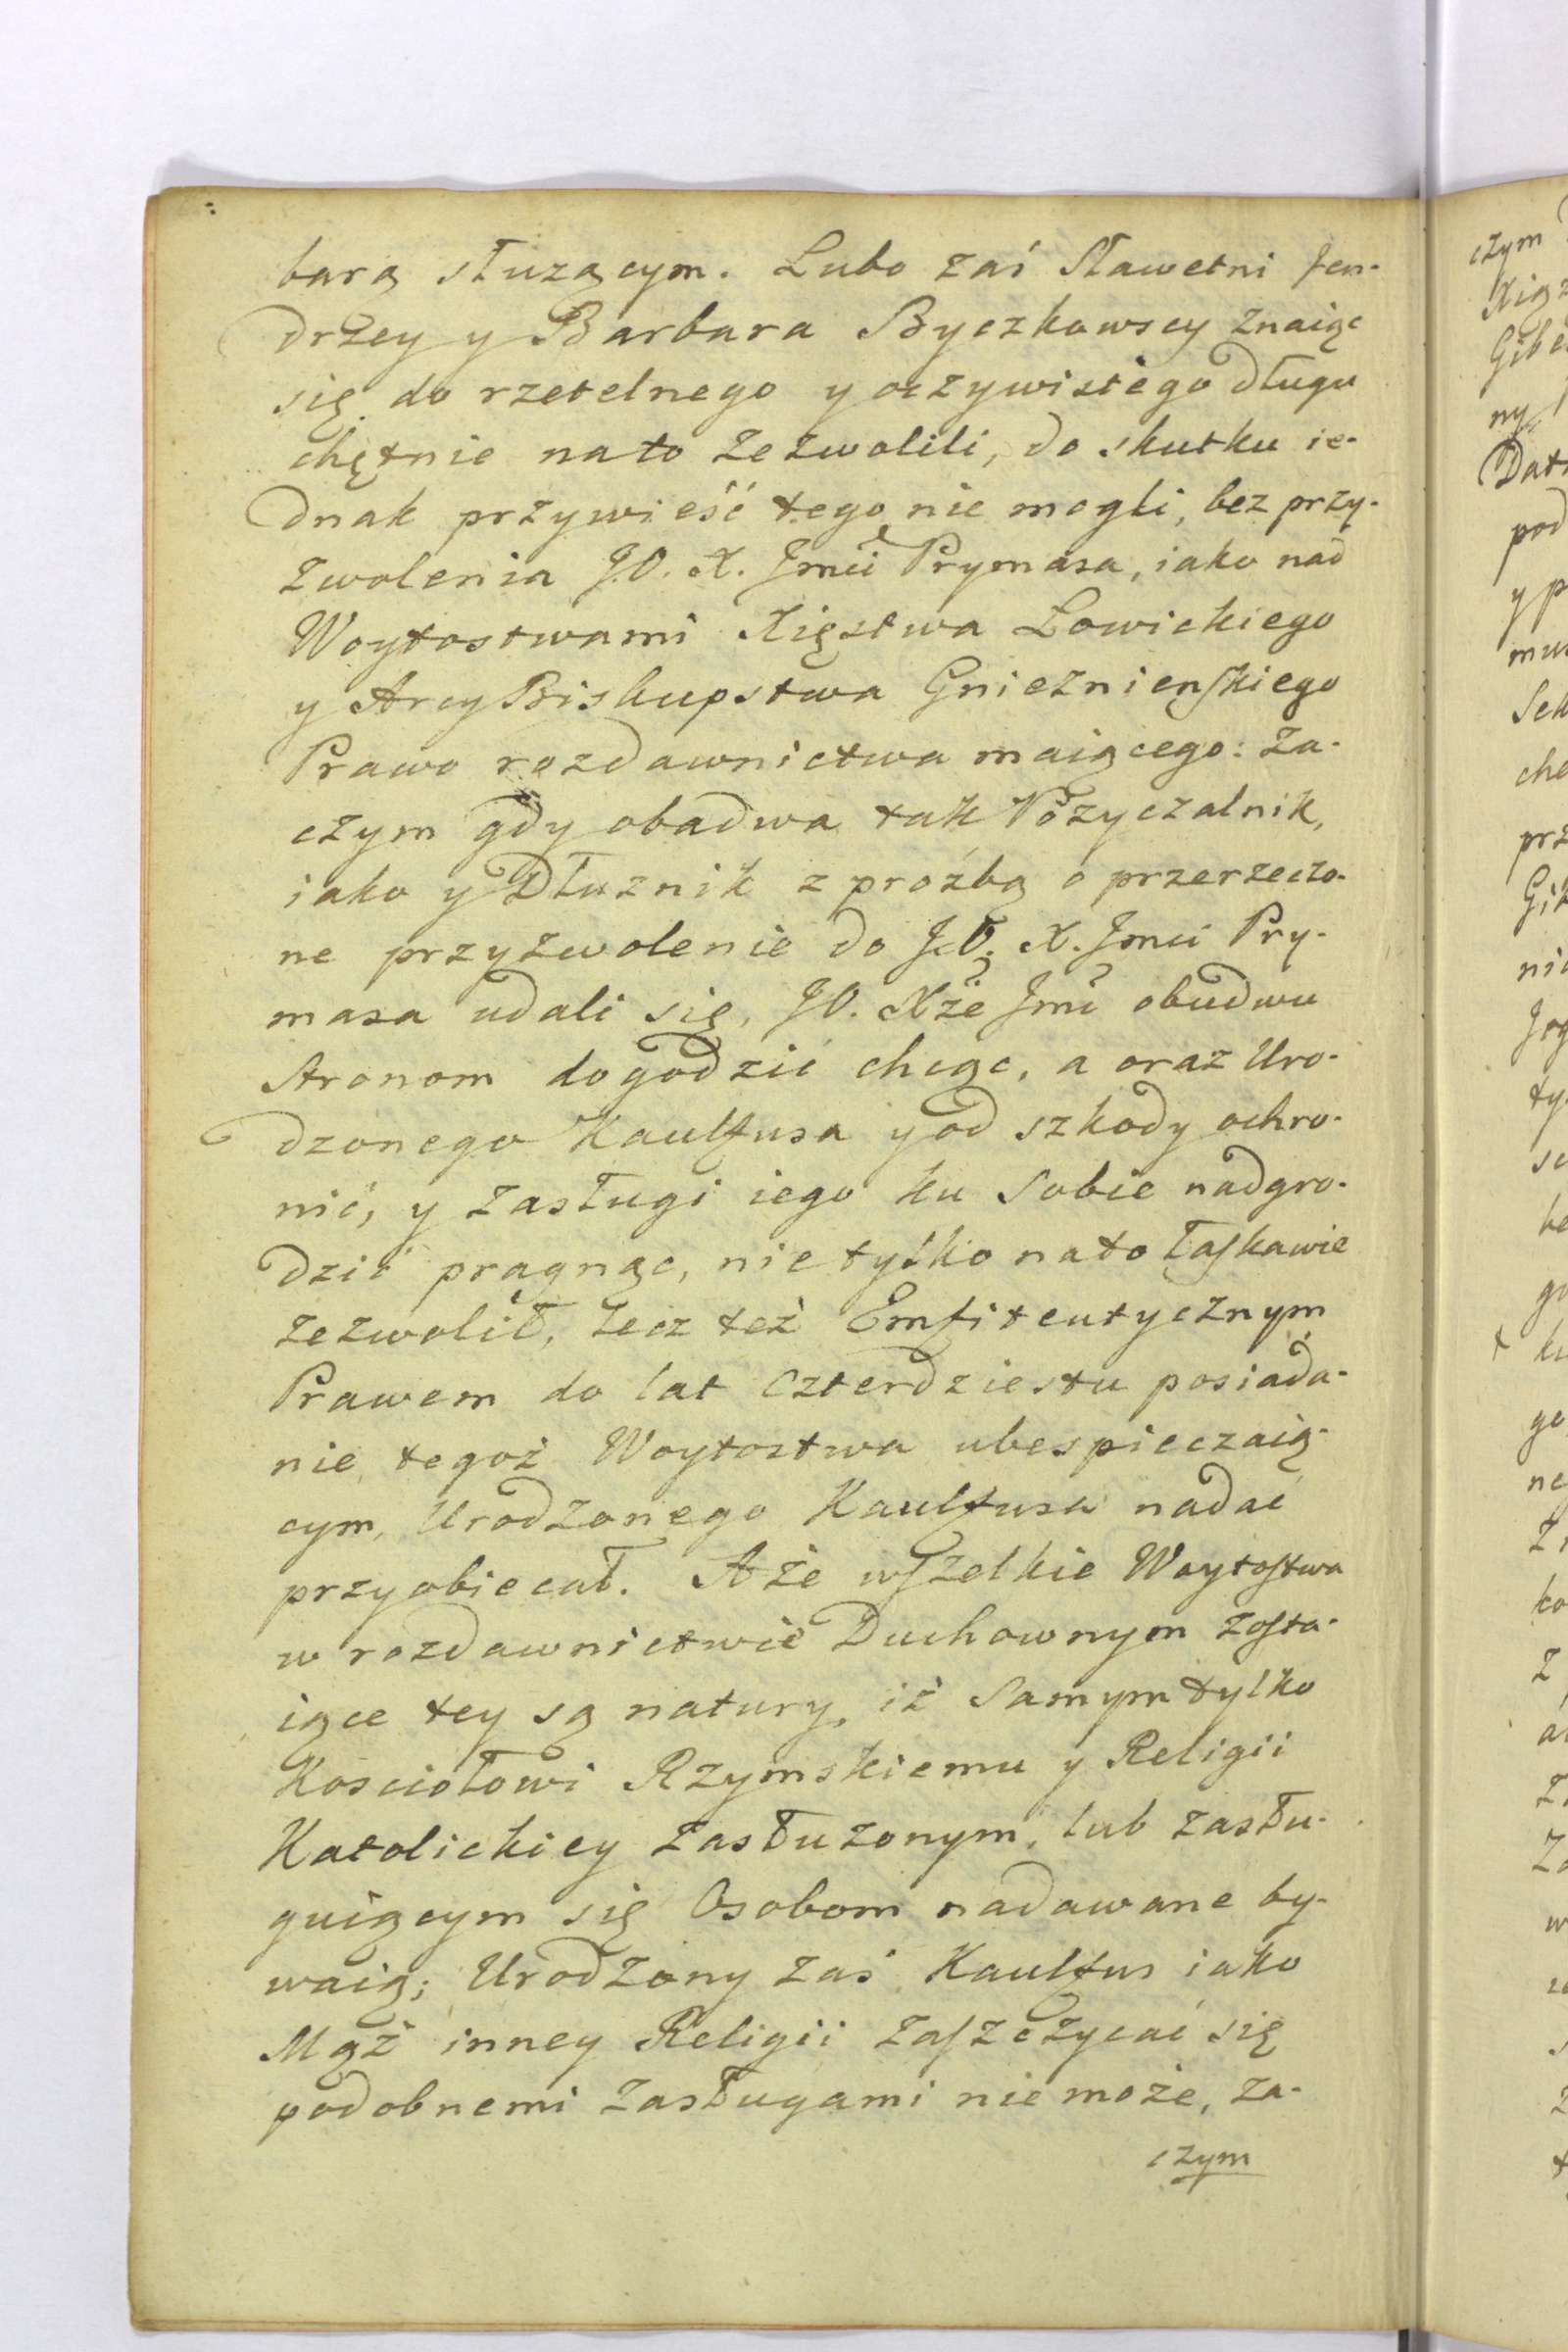 barą słuzącym. Lubo zaś Sławetni Jen-
drzey y Barbara Byczkowscy znaiąc
się do rzetelnego y oczywistego długu
chętnie na to zezwolili, do skutku ie-
dnak przywieść tego nie mogli, bez przy-
zwolenia J.O. X. Jmci Prymasa, iako nad
Woytostwami Xięstwa Łowickiego
y ArcyBiskupstwa Gnieznienskiego
Prawo rozdawnictwa maiącego: Za-
czym gdy obadwa tak Pożyczalnik,
iako y Dłuznik z proźbą o przerzeczo-
ne przyzwolenie do J.O. X. Jmci Pry-
masa udali się, JO. Xże Jmć obudwu
Stronom dogodzić chcąc, a oraz Uro-
dzonego Kaulfusa y od szkody ochro-
nić, y zasługi iego ku Sobie nadgro-
dzić pragnąc, nie tylko na to łaskawie
zezwolił, lecz też Emfiteutycznym
Prawem do lat czterdziestu posiada-
nie tegoż Woytostwa ubespieczaią-
cym, Urodzonego Kaulfusa nadać
przyobiecał. A że wszelkie Woytostwa
w rozdawnictwie Duchownym zosta-
iące tey są natury, iż Samym tylko
Kosciołowi Rzymskiemu y Religii
Katolickiey zasłuzonym, lub zasłu-
guiącym się Osobom nadawane by-
waią; Urodzony zaś Kaulfus iako
Mąż inney Religii zaszczycać się
podobnemi zasługami nie może, za-
czym